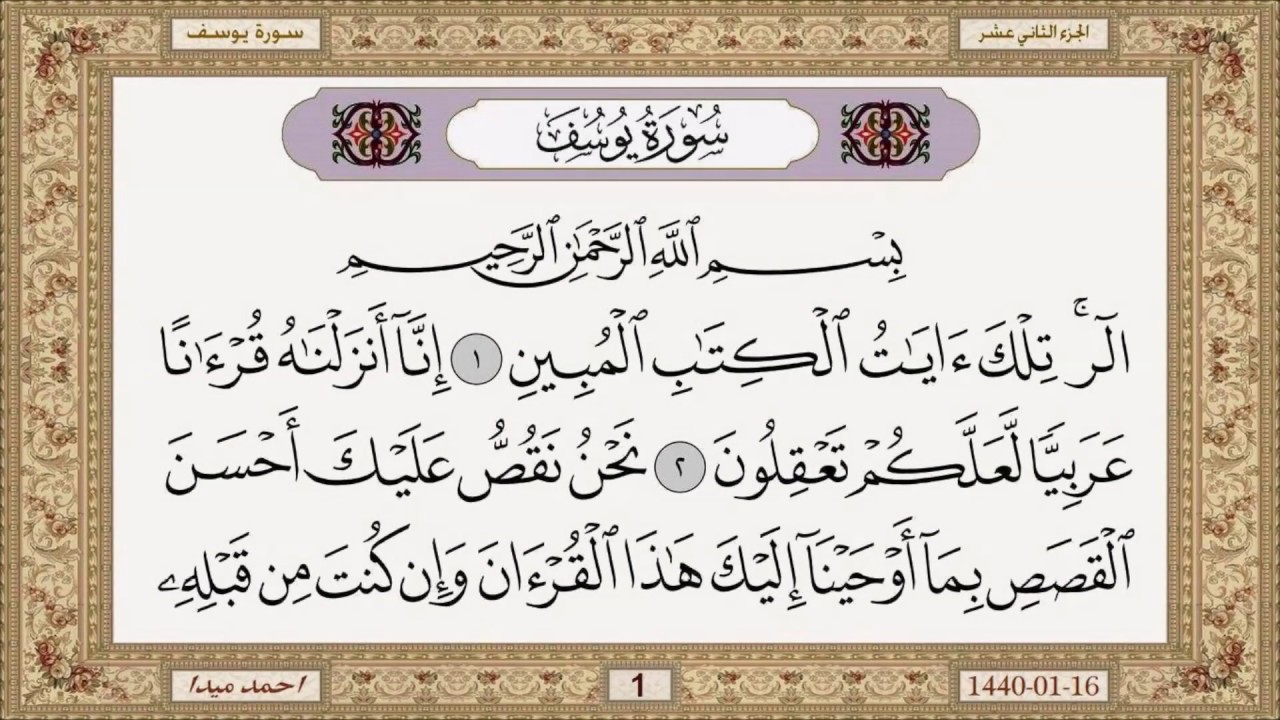 الجزء الثاني عشر
سورة يوسف
سُورَةُ يُوسُفَ
بِسْمِ ٱللَّهِ ٱلرَّحْمَٰنِ ٱلرَّحِيمِ
الٓرۚ تِلْكَ ءَايَٰتُ ٱلْكِتَٰبِ ٱلْمُبِينِ ١ إِنَّآ أَنزَلْنَٰهُ قُرْءَٰنًا
عَرَبِيًّا لَّعَلَّكُمْ تَعْقِلُونَ ٢ نَحْنُ نَقُصُّ عَلَيْكَ أَحْسَنَ
ٱلْقَصَصِ بِمَآ أَوْحَيْنَآ إِلَيْكَ هَٰذَا ٱلْقُرْءَانَ وَإِن كُنتَ مِن قَبْلِهِۦ
1440-01-16
1
احمد ميدا